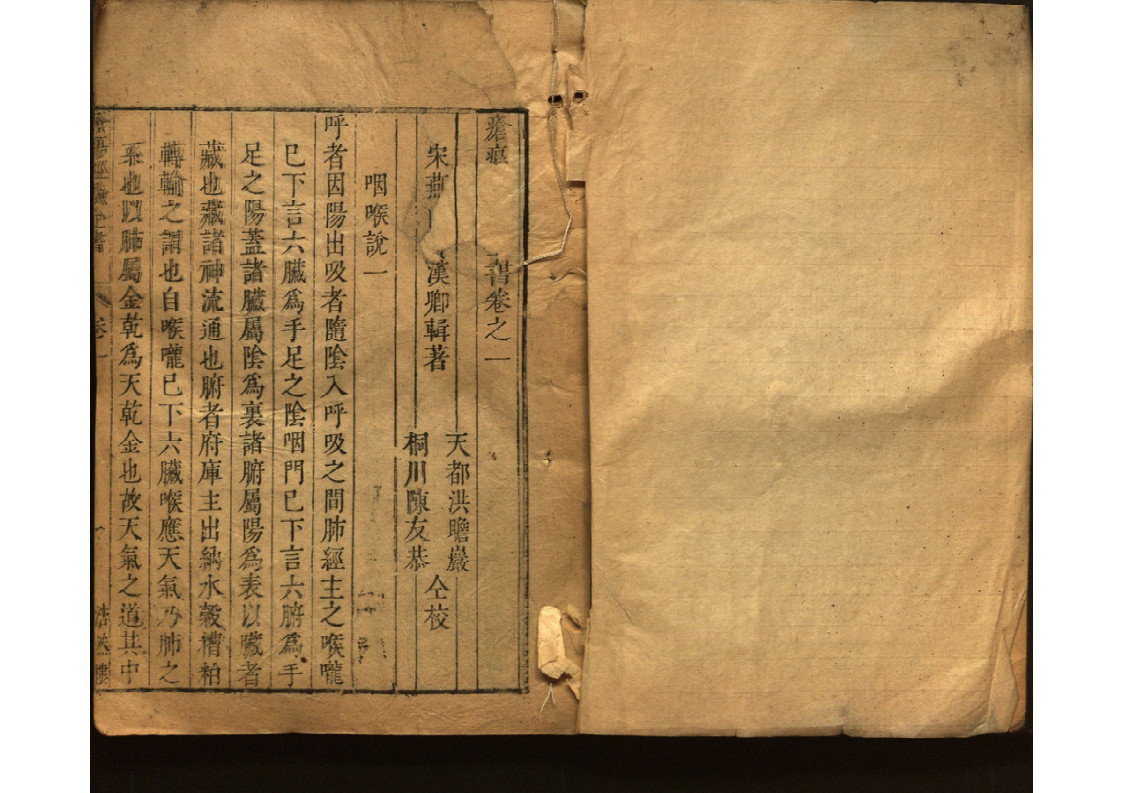 瘡瘍
書卷之一
天都洪瞻巖
宋燕
漢卿輯著
仝校
桐川陳友恭
咽喉說一
呼者因陽出吸者隨陰入呼吸之間肺經主之喉嚨
已下言六臟為手足之陰咽門已下言六腑為手
足之陽蓋諸臟屬陰為裏諸腑屬陽為表以臟者
藏也藏諸神流通也腑者府庫主出納水穀糟粕
轉輸之謂也自喉嚨已下六臟喉應天氣乃肺之
系也以肺屬金乾為天乾金也故天氣之道其中
瘡瘍經驗全書
卷一
一
浩然樓